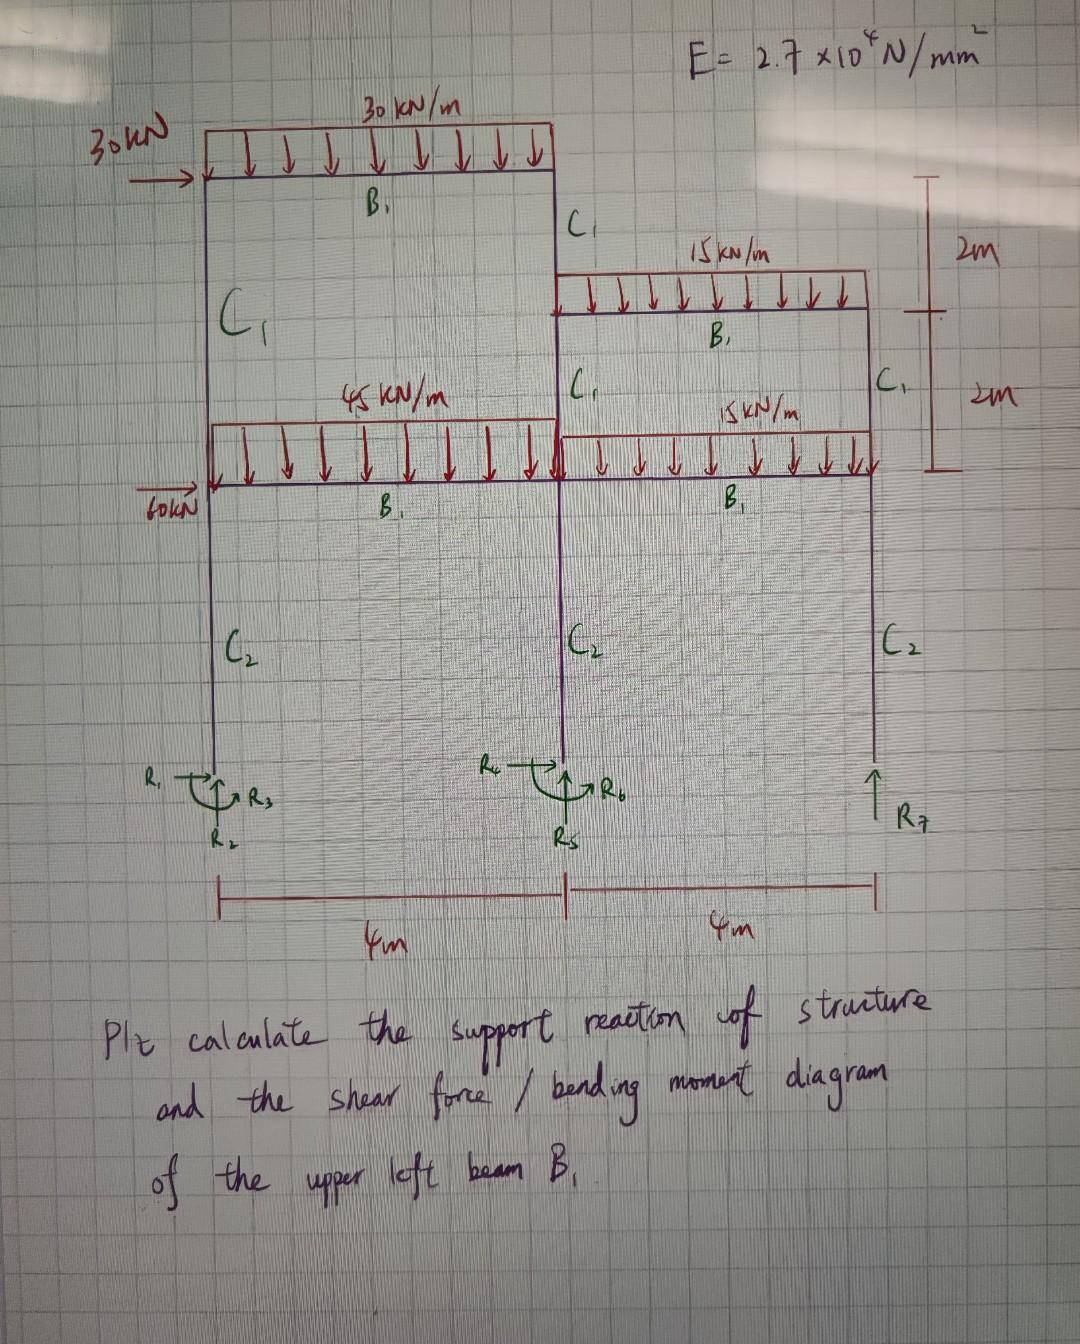 E= 2.7 ×10⁴ N/mm²
30 KN/m
30KN
B₁
C₁
15 KN/m
2m
C₁
B₁
45 KN/m
C₁
C₁
2m
15KN/m
60KN
B₁
B₁
C₂
C₂
C₂
R₁
R₃
R₂
R₄
R₆
R₅
R₇
4m
4m
Plz calculate the support reaction of structure
and the shear force / bending moment diagram
of the upper left beam B₁